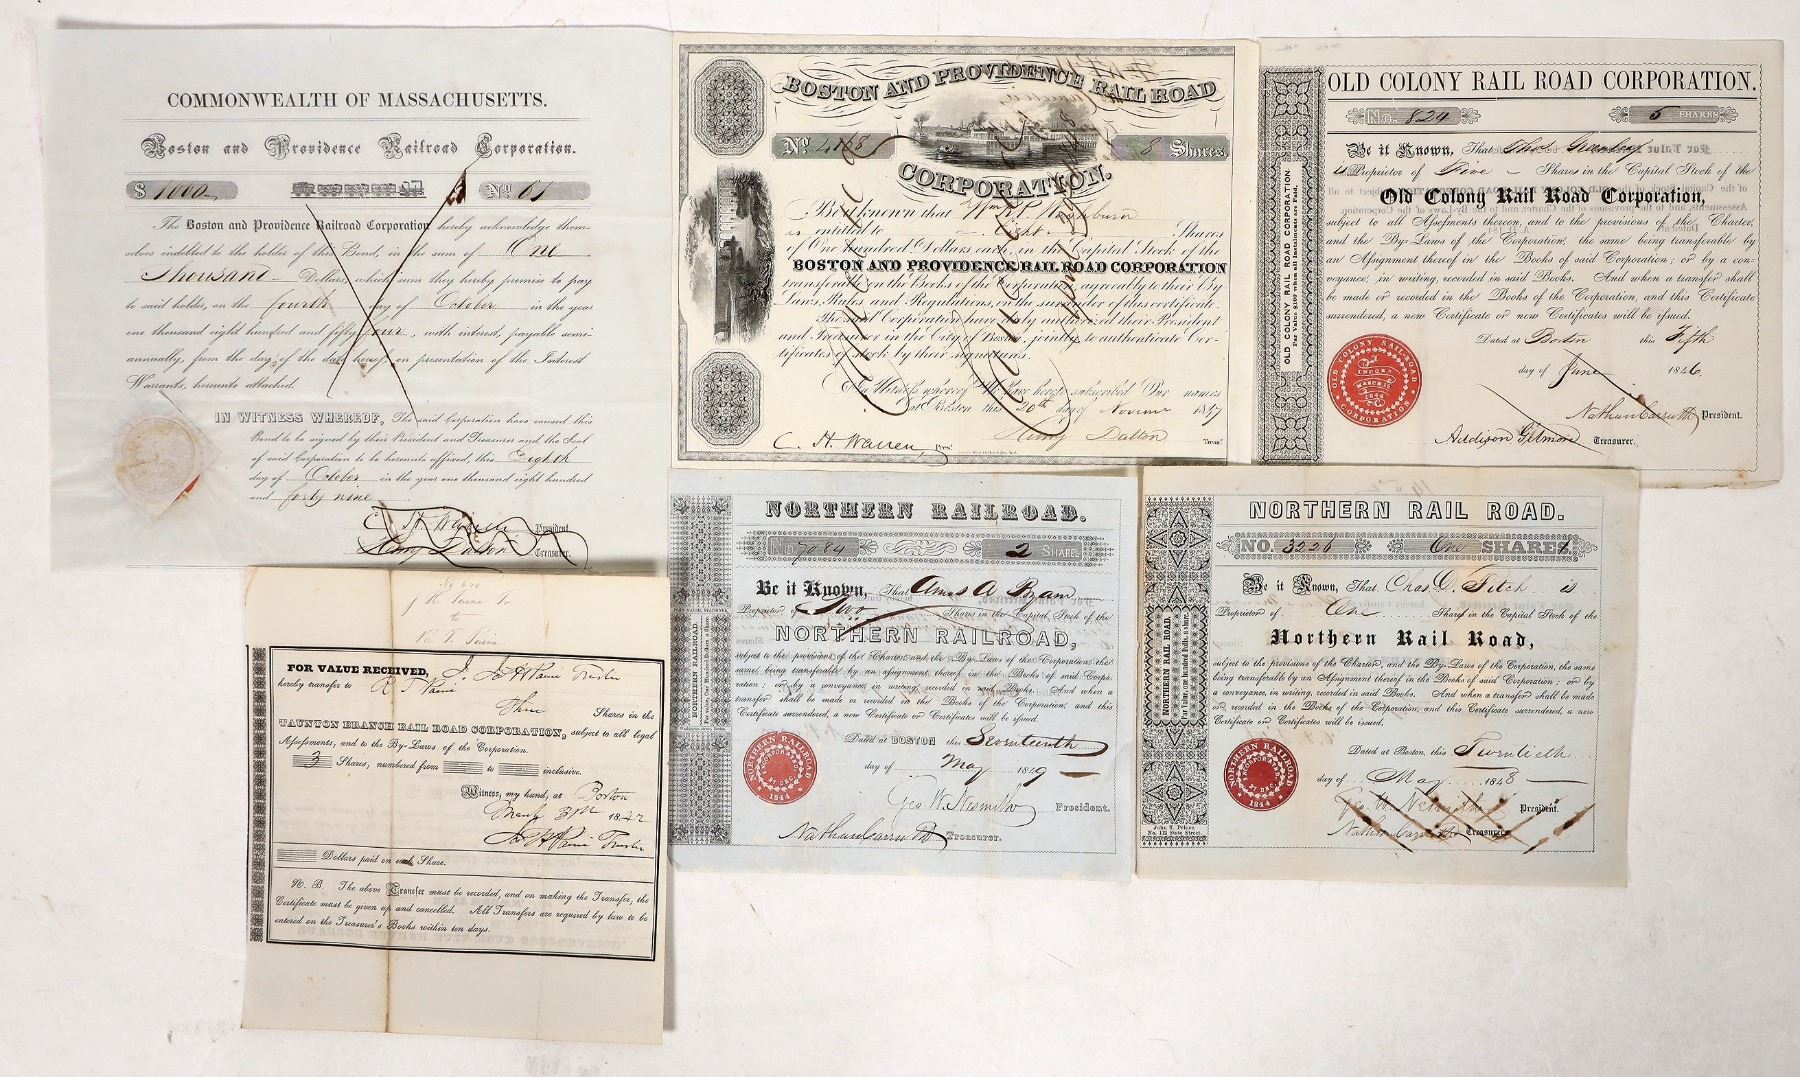 COMMONWEALTH OF MASSACHUSETTS.
Boston and Providence Railroad Corporation.
$ 1000 No 61
The Boston and Providence Railroad Corporation hereby acknowledge them-
selves indebted to the holder of this Bond, in the sum of One
Thousand Dollars, which sum they hereby promise to pay
to said holder, on the fourth day of October in the year
one thousand eight hundred and fifty four, with interest, payable semi-
annually, from the day of the date hereof, on presentation of the Interest
Warrants, hereunto attached.
IN WITNESS WHEREOF, The said Corporation have caused this
Bond to be signed by their President and Treasurer and the Seal
of said Corporation to be hereunto affixed, this Eighth
day of October in the year one thousand eight hundred
and forty nine
C. H. Warren President.
Henry Dalton Treasurer.
BOSTON AND PROVIDENCE RAIL ROAD
No 4168 8 Shares.
CORPORATION.
Be it known that Wm R. P. Washburn
is entitled to Eight Shares
of One hundred Dollars each, in the Capital Stock of the
BOSTON AND PROVIDENCE RAIL ROAD CORPORATION
transferable on the Books of the Corporation, agreeably to their By
Laws, Rules and Regulations, on the surrender of this certificate.
The said Corporation have duly authorized their President
and Treasurer in the City of Boston, jointly, to authenticate Cer-
tificates of stock by their signatures.
In Witness whereof We have hereto subscribed Our names
at Boston this 20th day of November 1847
C. H. Warren Prest.
Henry Dalton Treasr.
OLD COLONY RAIL ROAD CORPORATION.
No. 824 5 SHARES
Be it Known, That Chas. Granby
is Proprietor of Five Shares in the Capital Stock of the
Old Colony Rail Road Corporation,
subject to all Assessments thereon, and to the provisions of the Charter,
and the By-Laws of the Corporation, the same being transferable by
an Assignment thereof in the Books of said Corporation; or by a con-
veyance, in writing, recorded in said Books. And when a transfer shall
be made or recorded in the Books of the Corporation, and this Certificate
surrendered, a new Certificate or new Certificates will be issued.
Dated at Boston this Fifth
day of June 1846.
Nathan Carruth President.
Addison Gilmore Treasurer.
OLD COLONY RAIL ROAD CORPORATION.
Par Value $100 when all Instalments are Paid.
OLD COLONY RAIL-ROAD CORPORATION
INCORD MARCH 16 1844
NORTHERN RAILROAD.
No. 7084 2 SHARES
Be it Known, That Amos A Byam
Proprietor of Two Shares in the Capital Stock of the
NORTHERN RAILROAD,
subject to the provisions of the Charter and the By-Laws of the Corporation, the
same being transferable by an assignment thereof in the Books of said Corpo-
ration; or by a conveyance in writing, recorded in said Books. And when a
transfer shall be made or recorded in the Books of the Corporation, and this
Certificate surrendered, a new Certificate or Certificates will be issued.
Dated at BOSTON this Seventeenth
day of May 1849
Geo. W. Nesmith President.
Nathan Carruth Treasurer.
NORTHERN RAILROAD.
Par Value, One Hundred Dollars a Share.
NORTHERN RAILROAD
INCORPORATED 27 DEC. 1844
NORTHERN RAIL ROAD.
NO. 3226 One SHARE
Be it Known, That Chas. O. Fitch is
Proprietor of One Shares in the Capital Stock of the
Northern Rail Road,
subject to the provisions of the Charter, and the By-Laws of the Corporation, the same
being transferable by an Assignment thereof in the Books of said Corporation; or by
a conveyance, in writing, recorded in said Books. And when a transfer shall be made
or recorded in the Books of the Corporation, and this Certificate surrendered, a new
Certificate or Certificates will be issued.
Dated at Boston, this Twentieth
day of May 1848
Geo. W. Nesmith President.
Nathan Carruth Treasurer
NORTHERN RAIL ROAD.
Par Value, one hundred Dolls. a share.
NORTHERN RAILROAD
INCORPORATED 27 DEC. 1844
John T. Prince,
No. 121 State Street.
to
R. T. Paine
FOR VALUE RECEIVED, I, Paine Trustee
hereby transfer to R T Paine
Three Shares in the
TAUNTON BRANCH RAIL ROAD CORPORATION, subject to all legal
Assessments, and to the By-Laws of the Corporation.
3 Shares, numbered from to inclusive.
Witness, my hand, at Boston
May 31st 1842
Paine Trustee
Dollars paid on each Share.
N. B. The above Transfer must be recorded, and on making the Transfer, the
Certificate must be given up and cancelled. All Transfers are required by law to be
entered on the Treasurer's Books within ten days.